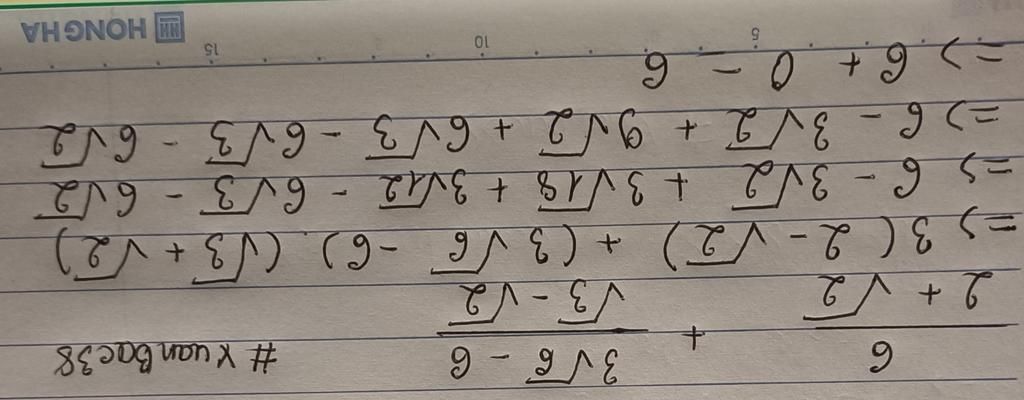 6/(2 + √2) + (3√6 - 6)/(√3 - √2) #XuanBac38
=> 3(2 - √2) + (3√6 - 6).(√3 + √2)
=> 6 - 3√2 + 3√18 + 3√12 - 6√3 - 6√2
=> 6 - 3√2 + 9√2 + 6√3 - 6√3 - 6√2
=> 6 + 0 - 6
5 10 15
HONG HA